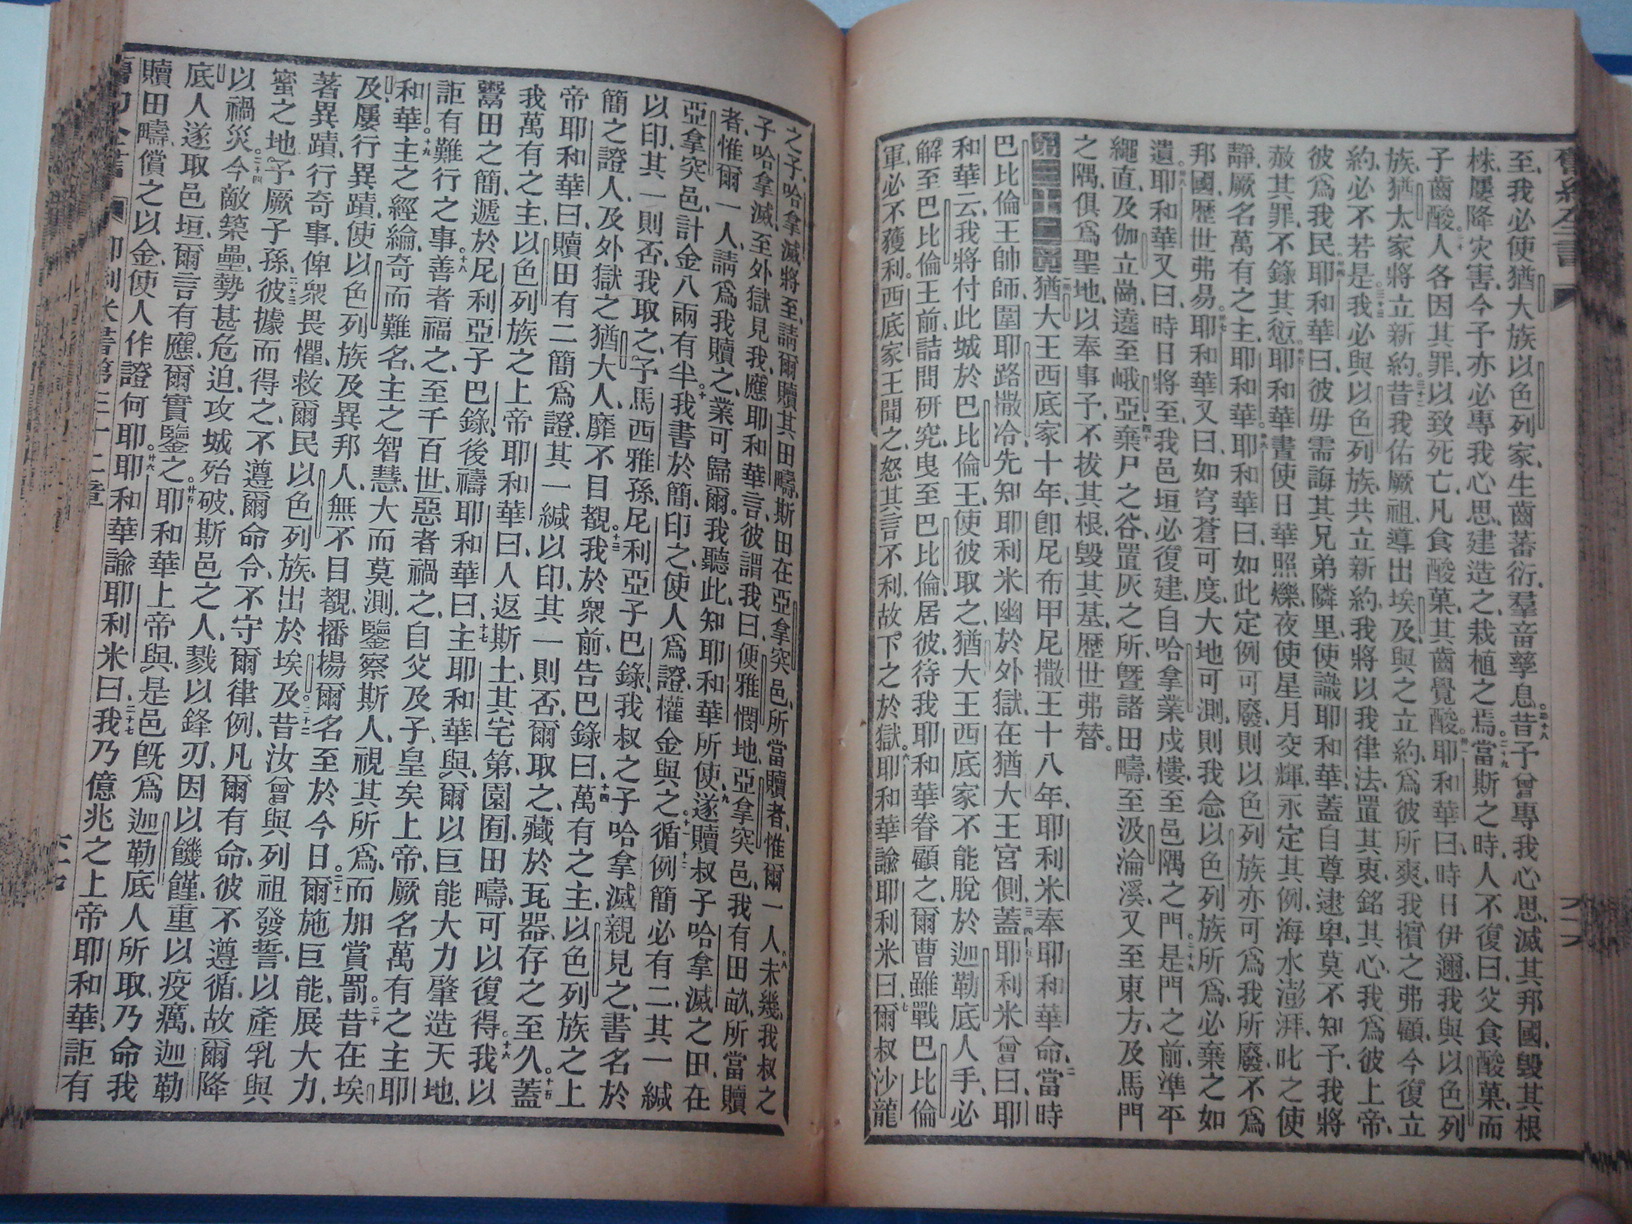 舊約全書
至我必使猶大族以色列家生齒蕃衍羣畜孳息昔予曾專我心思滅其邦國毀其根
株屢降災害今予亦必專我心思建造之栽植之焉當斯之時人不復曰父食酸菓而
子齒酸人各因其罪以致死亡凡食酸菓其齒覺酸耶和華曰時日伊邇我與以色列
族猶太家將立新約昔我佑厥祖導出埃及與之立約爲彼所爽我擯之弗顧今復立
約必不若是我必與以色列族共立新約我將以我律法置其衷銘其心我爲彼上帝
彼爲我民耶和華曰彼毋需誨其兄弟隣里使識耶和華蓋自尊逮卑莫不知予我將
赦其罪不錄其愆耶和華晝使日華照爍夜使星月交輝永定其例海水澎湃叱之使
靜厥名萬有之主耶和華耶和華曰如此定例可廢則以色列族亦可爲我所廢不爲
邦國歷世弗易耶和華又曰如穹蒼可度大地可測則我念以色列族所爲必棄之如
遺耶和華又曰時日將至我邑垣必復建自哈拿業戍樓至邑隅之門是門之前準平
繩直及伽立崗遶至峨亞棄尸之谷置灰之所曁諸田疇至汲淪溪又至東方及馬門
之隅俱爲聖地以奉事予不拔其根毀其基歷世弗替
第三十二章猶大王西底家十年卽尼布甲尼撒王十八年耶利米奉耶和華命當時
巴比倫王帥師圍耶路撒冷先知耶利米幽於外獄在猶大王宮側蓋耶利米曾曰耶
和華云我將付此城於巴比倫王使彼取之猶大王西底家不能脫於迦勒底人手必
解至巴比倫王前詰問研究曳至巴比倫居彼待我耶和華眷顧之爾曹雖戰巴比倫
軍必不獲利西底家王聞之怒其言不利故下之於獄耶和華諭耶利米曰爾叔沙龍
之子哈拿滅將至請爾贖其田疇斯田在亞拿突邑所當贖者惟爾一人未幾我叔之
子哈拿滅至外獄見我應耶和華言彼謂我曰便雅憫地亞拿突邑我有田畝所當贖
者惟爾一人請爲我贖之業可歸爾我聽此知耶和華所使遂贖叔子哈拿滅之田在
亞拿突邑計金八兩有半我書於簡印之使人爲證權金與之循例簡必有二其一緘
以印其一則否我取之予馬西雅孫尼利亞子巴錄我叔之子哈拿滅親見之書名於
簡之證人及外獄之猶大人靡不目覩我於衆前告巴錄曰萬有之主以色列族之上
帝耶和華曰贖田有二簡爲證其一緘以印其一則否爾取之藏於瓦器存之至久蓋
我萬有之主以色列族之上帝耶和華曰人返斯土其宅第園囿田疇可以復得我以
鬻田之簡遞於尼利亞子巴錄後禱耶和華曰主耶和華與爾以巨能大力肇造天地
詎有難行之事善者福之至千百世惡者禍之自父及子皇矣上帝厥名萬有之主耶
和華主之經綸奇而難名主之智慧大而莫測鑒察斯人視其所爲而加賞罰昔在埃
及屢行異蹟使以色列族及異邦人無不目覩播揚爾名至於今日爾施巨能展大力
著異蹟行奇事俾衆畏懼救爾民以色列族出於埃及昔汝曾與列祖發誓以產乳與
蜜之地予厥子孫彼據而得之不遵爾命令不守爾律例凡爾有命彼不遵循故爾降
以禍災今敵築壘勢甚危迫攻城殆破斯邑之人戮以鋒刃因以饑饉重以疫癘迦勒
底人遂取邑垣爾言有應爾實鑒之耶和華上帝與是邑旣爲迦勒底人所取乃命我
贖田疇償之以金使人作證何耶耶和華諭耶利米曰我乃億兆之上帝耶和華詎有
耶利米書第三十二章